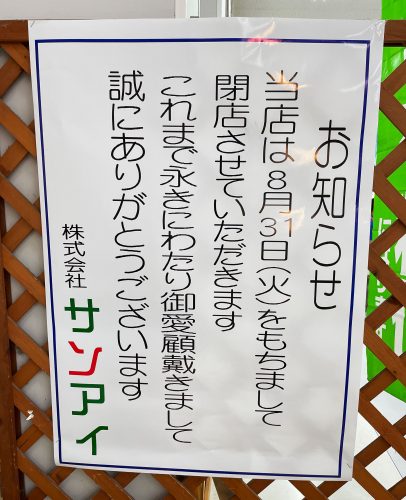 お知らせ
当店は8月31日(火)をもちまして
閉店させていただきます
これまで永きにわたり御愛顧戴きまして
誠にありがとうございます
株式会社 サンアイ